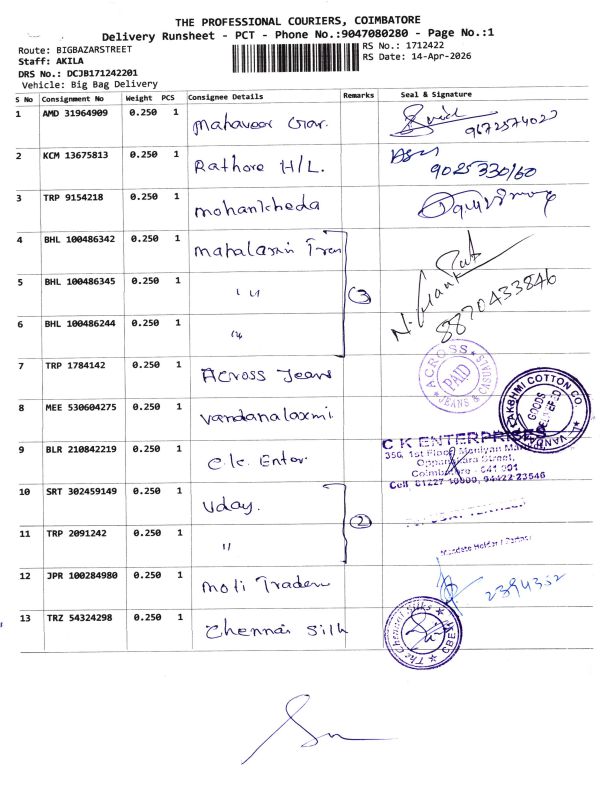 THE PROFESSIONAL COURIERS, COIMBATORE
Delivery Runsheet - PCT - Phone No.:9047080280 - Page No.:1
Route: BIGBAZARSTREET
RS No.: 1712422
Staff: AKILA
RS Date: 14-Apr-2026
DRS No.: DCJB171242201
Vehicle: Big Bag Delivery
S No Consignment No Weight PCS Consignee Details Remarks Seal & Signature
1 AMD 31964909 0.250 1 Mahaveer
2 KCM 13675813 0.250 1 Rathore H/L.
3 TRP 9154218 0.250 1 Mohankheda
4 BHL 100486342 0.250 1
5 BHL 100486345 0.250 1 " " 3
8870433846
6 BHL 100486244 0.250 1 "
7 TRP 1784142 0.250 1 Across Jeans ACROSS PAID JEANS & CASUALS
8 MEE 530604275 0.250 1 Vandanalaxmi COTTON CO. GOODS
9 BLR 210842219 0.250 1 C.K. Enter C K ENTERPRISES
356, 1st Floor,
Street,
Coimbatore - 641 001
10 SRT 302459149 0.250 1 Uday. 2
11 TRP 2091242 0.250 1 "
12 JPR 100284980 0.250 1 Moti Traders
13 TRZ 54324298 0.250 1 Chennai Silk The Chennai Silks CBE